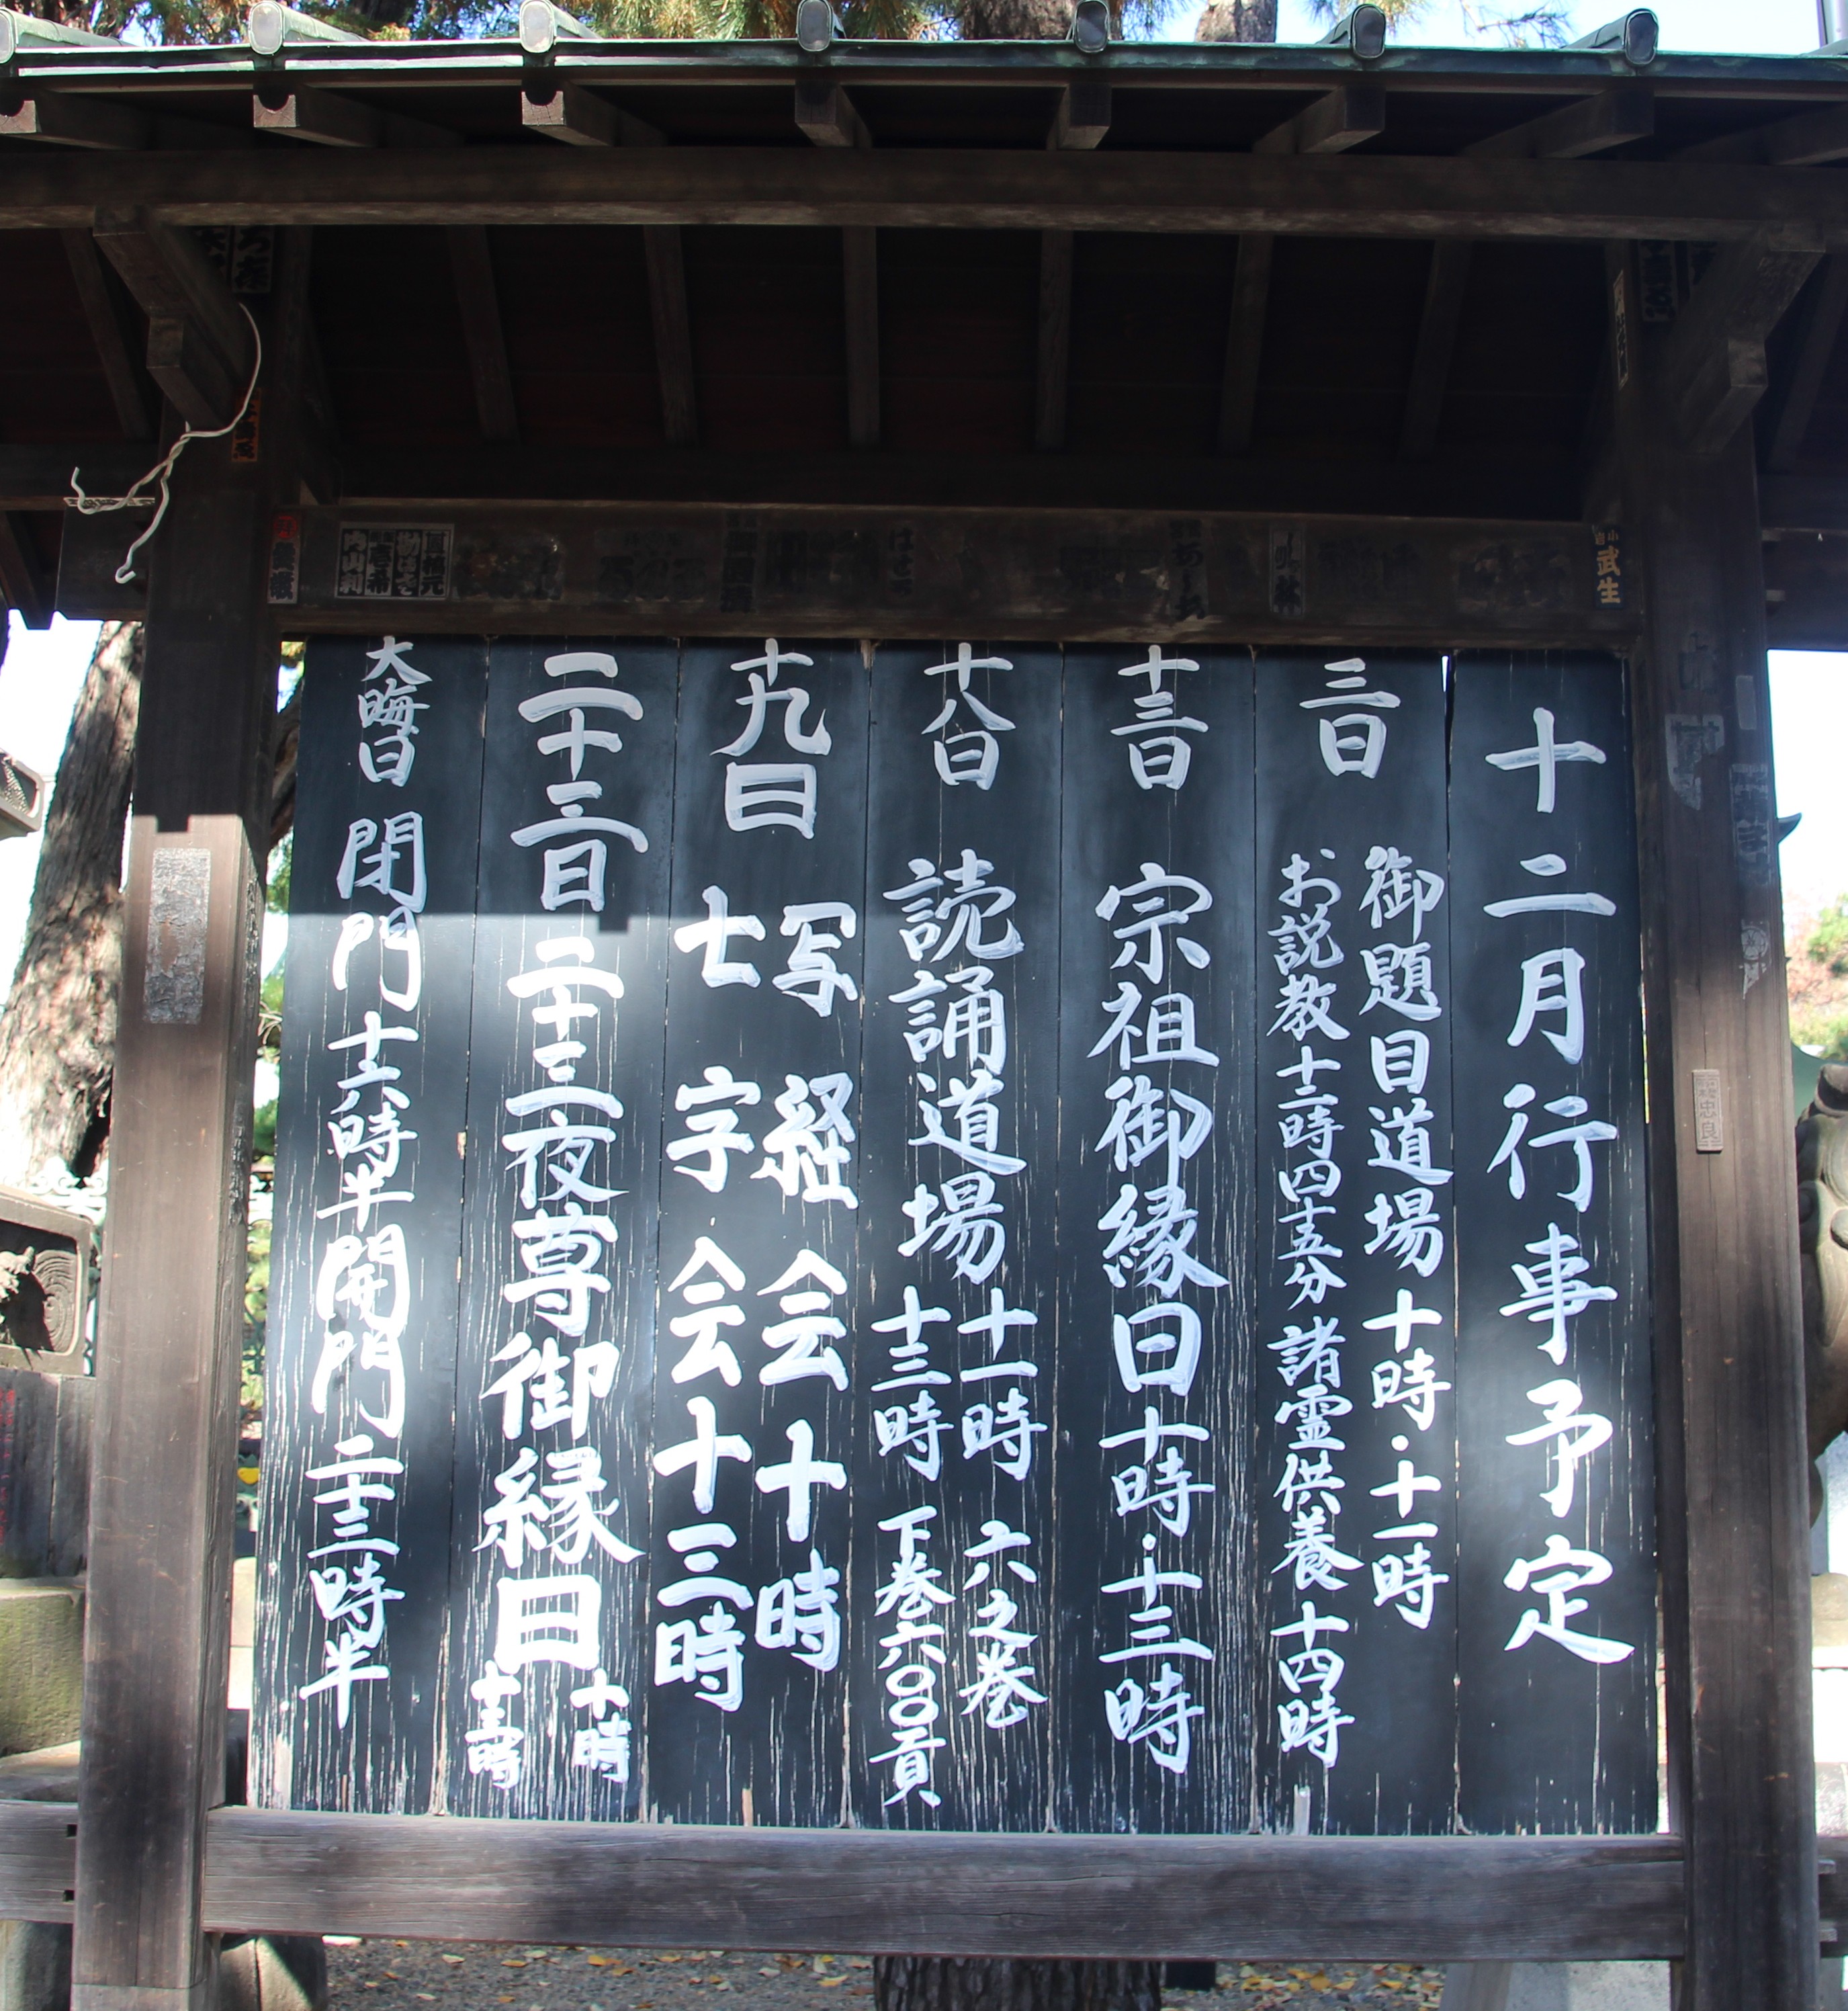 十二月行事予定
三日
御題目道場 十時・十一時
お説教 十二時四十五分 諸霊供養 十四時
十三日 宗祖御縁日 十時・十三時
十八日 読誦道場
十一時 六之巻
十三時 下巻六〇〇貢
十九日
写経会 十時
七字会 十三時
二十三日 二十三夜尊御縁日
十時
十三時
大晦日 閉門 十六時半 開門 二十三時半
武生